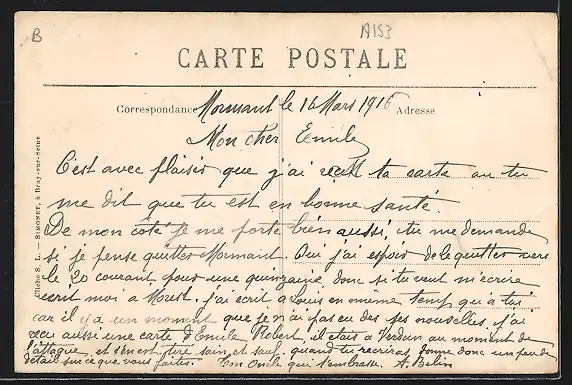 B
A153
CARTE POSTALE
Correspondance Mormant le 16 Mars 1916 Adresse
Mon cher Emile
C'est avec plaisir que j'ai ta carte ou tu
me dit que tu est en bonne santé.
De mon coté je me porte bien aussi, tu me demande
si je pense quitter Mormant. Oui j'ai espoir de le quitter vers
le 20 courant pour une quinzaine, donc si tu veut m'écrire
écrit moi a j'ai écrit a Louis en même temp qu'a toi
car il y a un moment que je n'ai pas eu des ses nouvelles, j'ai
aussi une carte d'Emile Robert, il etais a Verdun au moment de
l'attaque, et s'en est tiré sain et sauf, quand tu recrira donne donc un peu de
détail sur ce que vous faites. Ton Oncle qui t'embrasse. A. Belin
Cliché S. L. — SIMONET, à Bray-sur-Seine